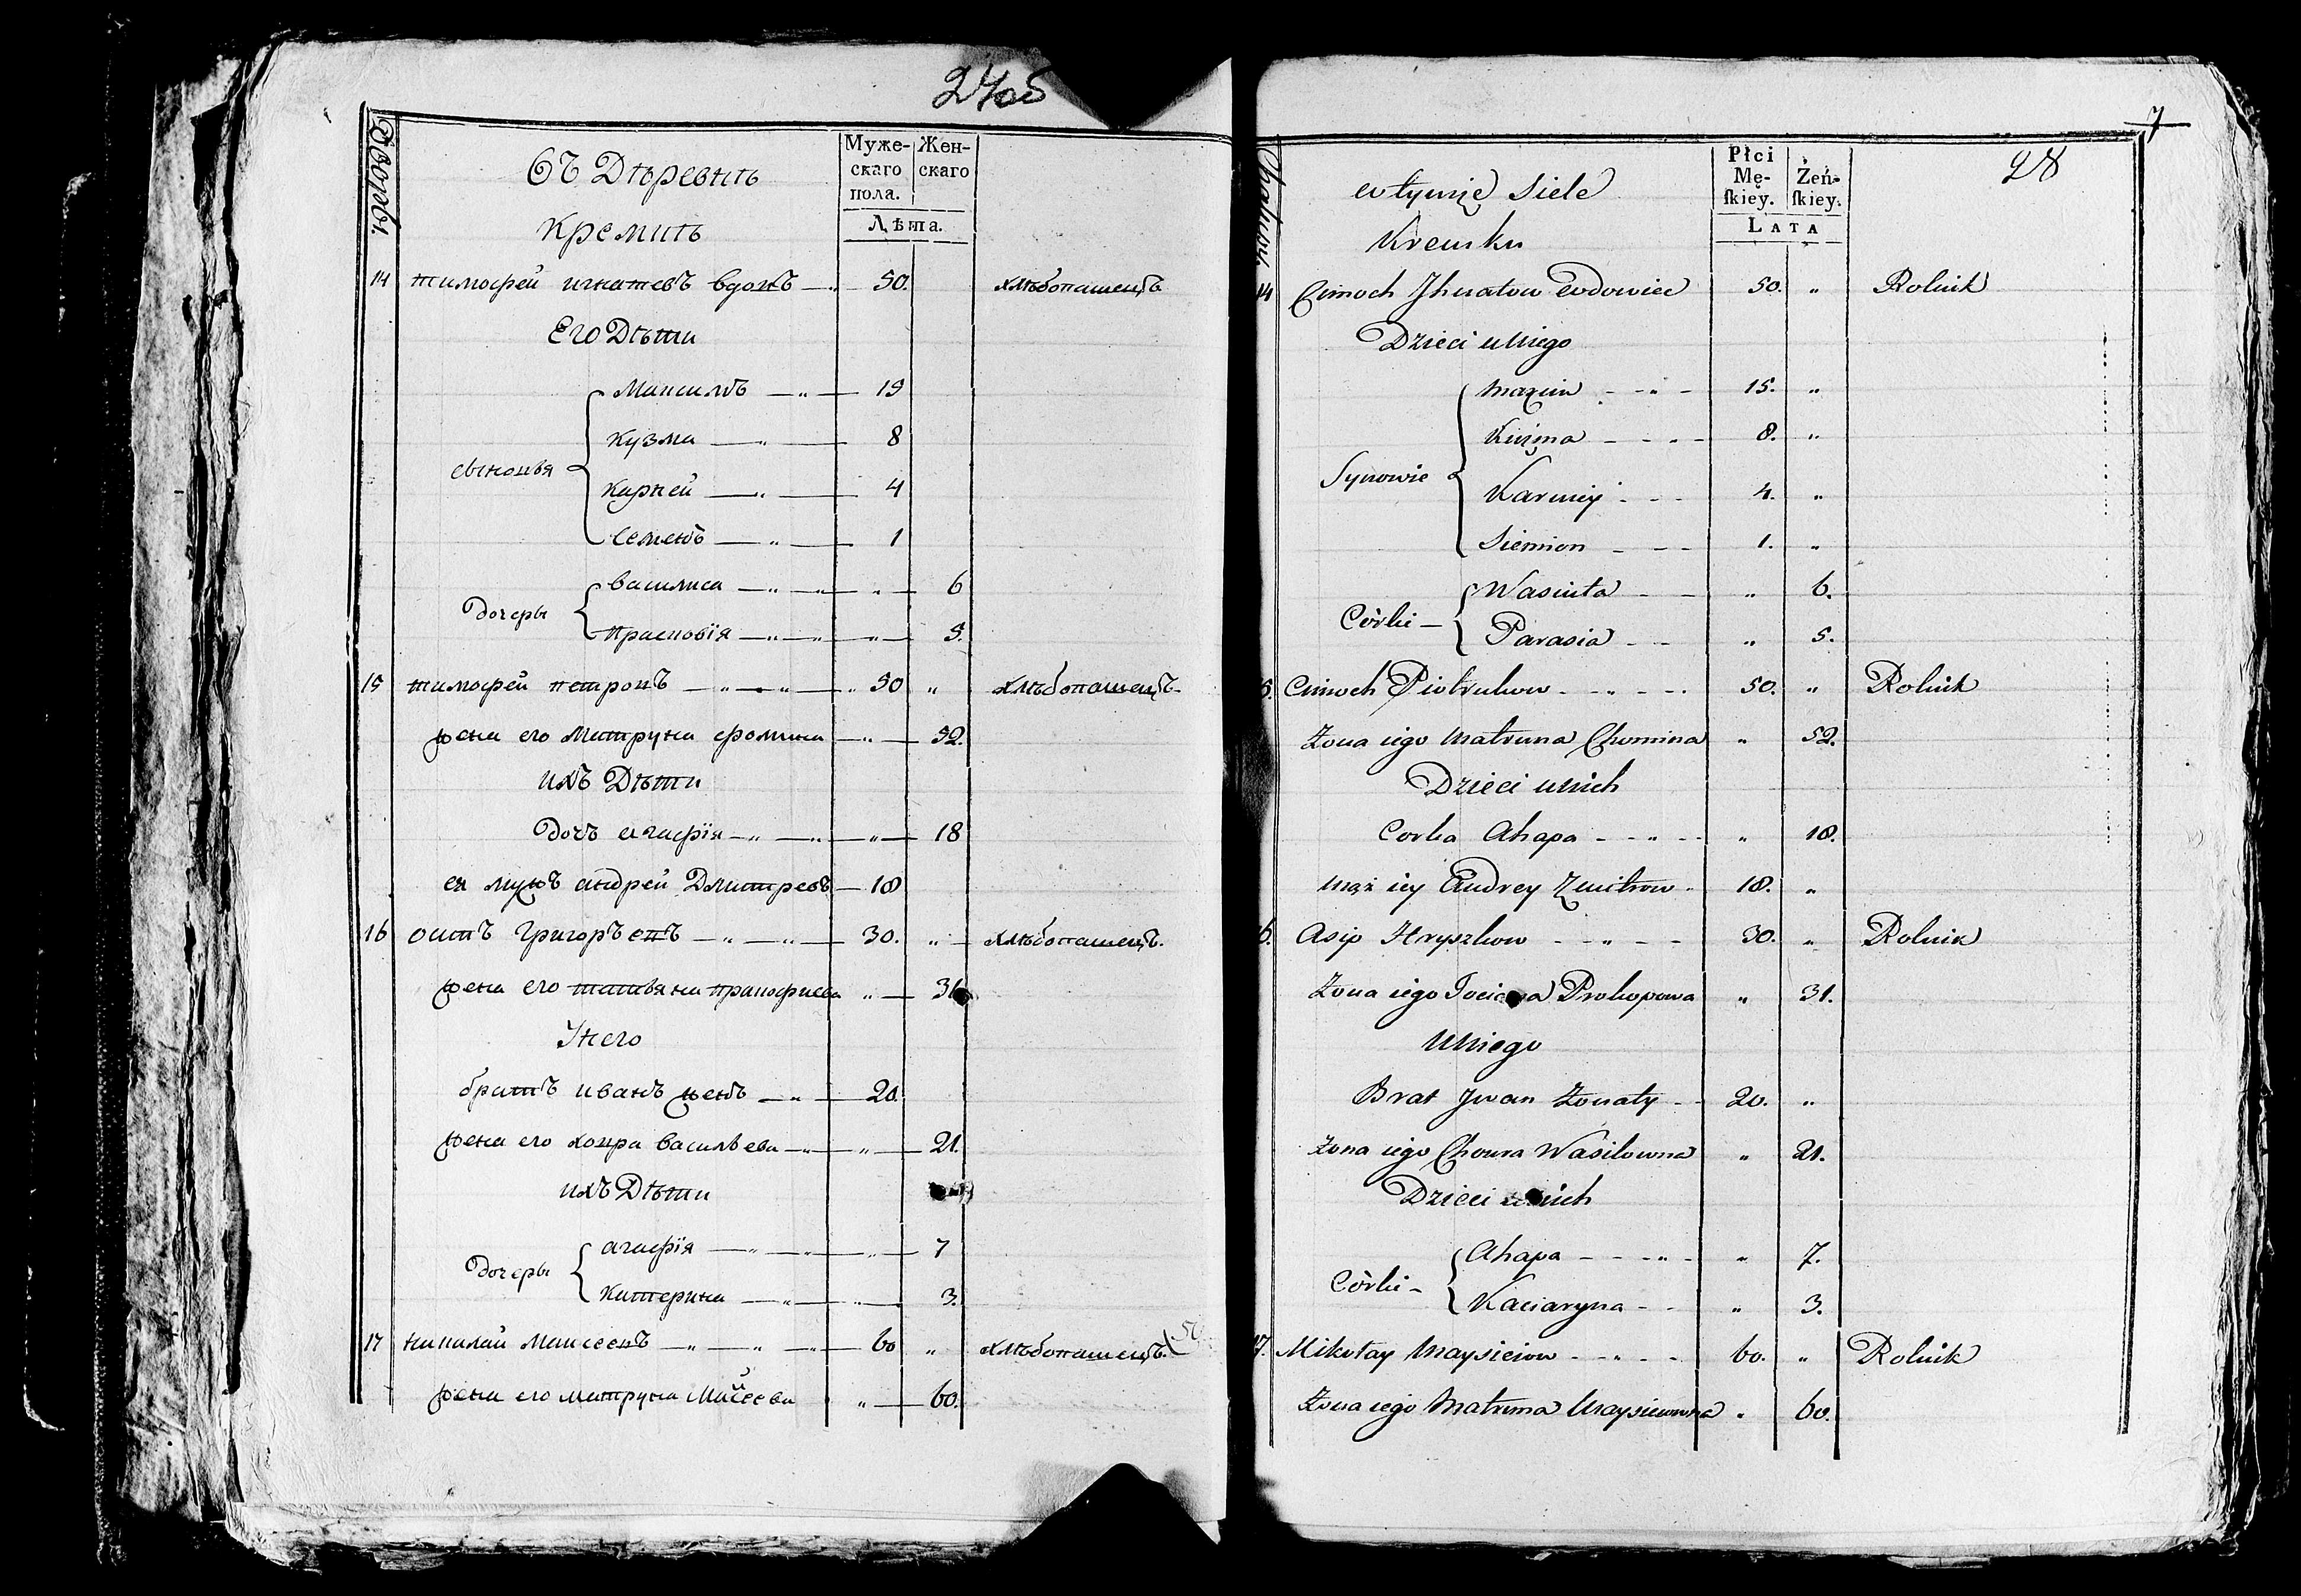 24об
Дворы.
Въ Дѣревнѣ
Кремнѣ
Муже-
скаго
пола.
Жен-
скаго
Лѣта.
14 тимофей игнатевъ вдовъ 50. хлѣбопашецъ
Его Дѣти
сыновья
Максимъ 15
Кузма 8
Карней 4
Семенъ 1
Дочеры
Василиса " 6
Прасковїя " 5.
15 тимофей петровъ 50 " хлѣбопашецъ.
жена его Матруна фомина " 52.
ихъ Дѣти
Дочъ агафїя " 18
ея мужъ андрей Дмитревъ 18
16 осипъ Григоръевъ 30. " хлѣбопашецъ.
жена его татьяна пракофиева " 31
У него
братъ иванъ женъ 20.
жена его ховра васильева " 21.
ихъ Дѣти
Дочеры
агафїя " 7
Катерина " 3.
17 николай Моисеевъ 60 " хлѣбопашецъ.
жена его матруна Мойсеева " 60.
7
28
w tymże Siele
Kremku
Płci
Mę-
ſkiey.
Żeń-
ſkiey.
LATA
14 Cimoch Jhnatow wdowiec 50. " Rolnik
Dzieci uniego
Synowie
Maxim 15. "
Kuźma 8. "
Karniey 4. "
Siemion 1. "
Córki
Wasiuta " 6.
Parasia " 5.
15. Cimoch Piotrukow 50. " Rolnik
Żona iego Matruna Chomina " 52.
Dzieci unich
Corka Ahapa " 18.
mąż iey Andrey Zmitrow 18. "
16. Asip Hryszkow 30. " Rolnik
Żona iego Prokopowa " 31.
Uniego
Brat Jwan Żonaty 20. "
Żona iego Chowra Wasilowna " 21.
Dzieci unich
Córki
Ahapa " 7.
Kaciaryna " 3.
17. Mikołay Maysieiow 60. " Rolnik
Żona iego Matruna Maysieiowna " 60.